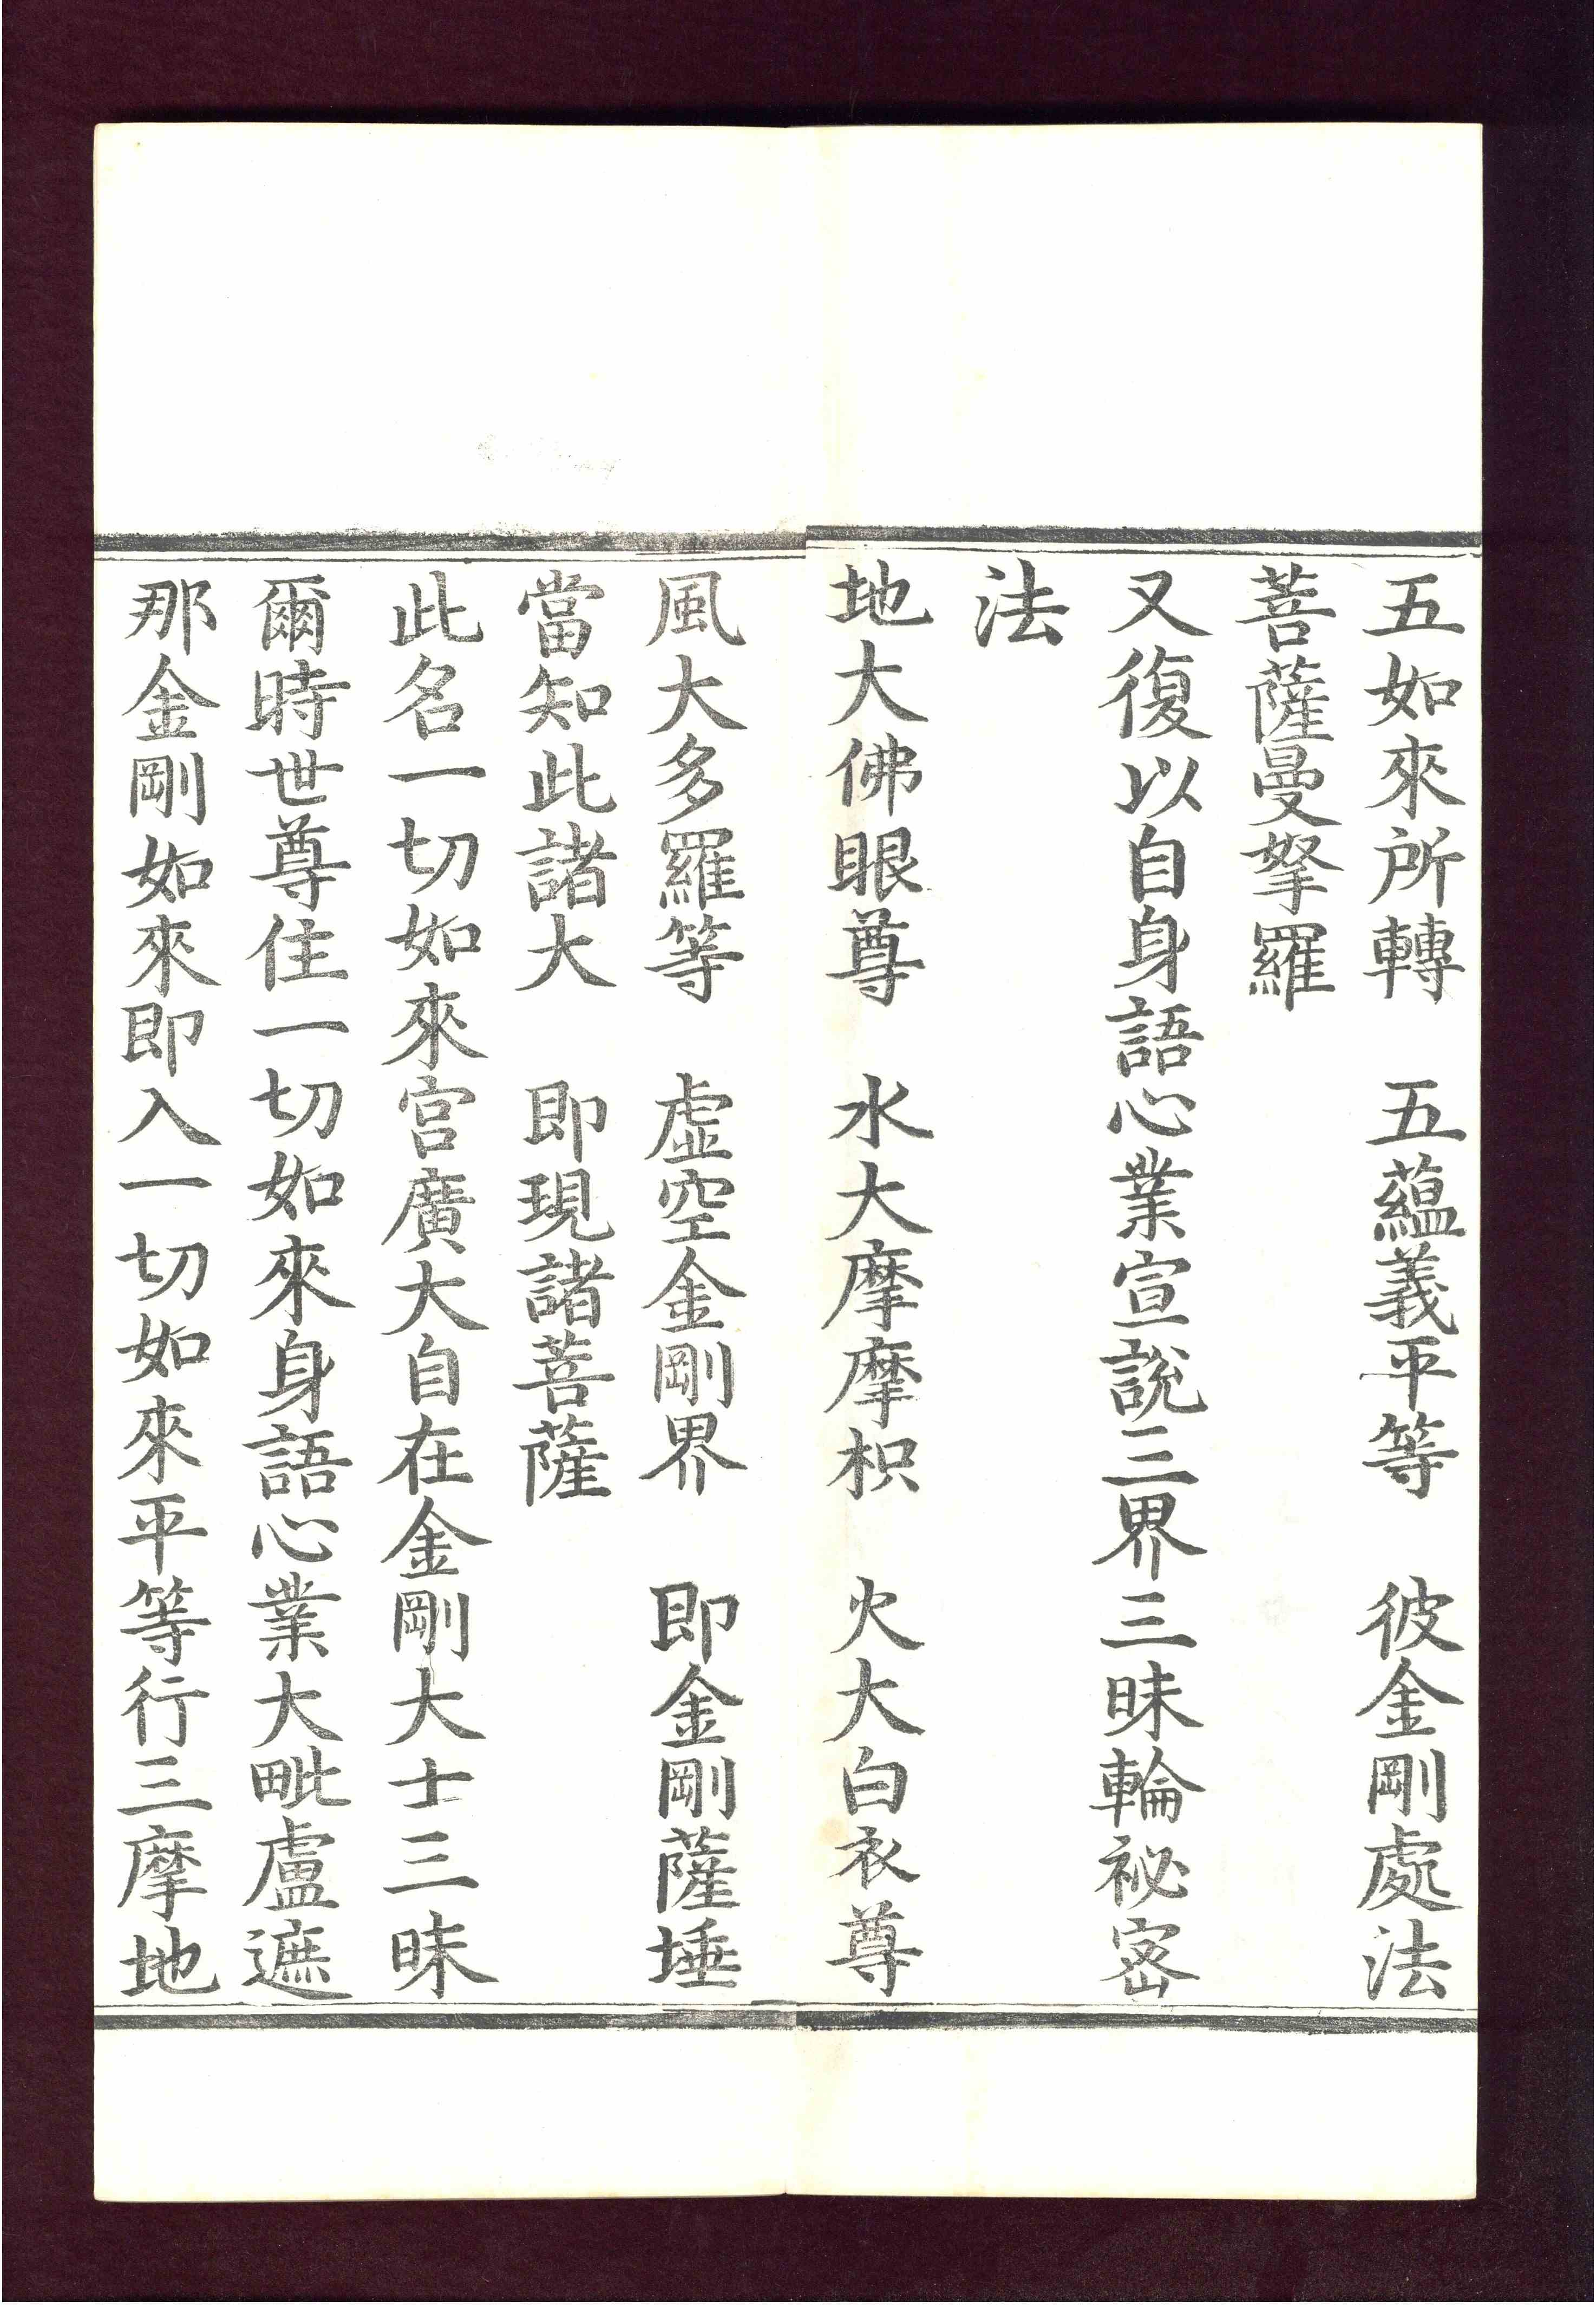 五如來所轉　五蘊義平等　彼金剛處法
菩薩曼拏羅
又復以自身語心業宣說三界三昧輪祕密
法
地大佛眼尊　水大摩摩枳　火大白衣尊
風大多羅等　虛空金剛界　即金剛薩埵
當知此諸大　即現諸菩薩
此名一切如來宮廣大自在金剛大士三昧
爾時世尊住一切如來身語心業大毗盧遮
那金剛如來即入一切如來平等行三摩地